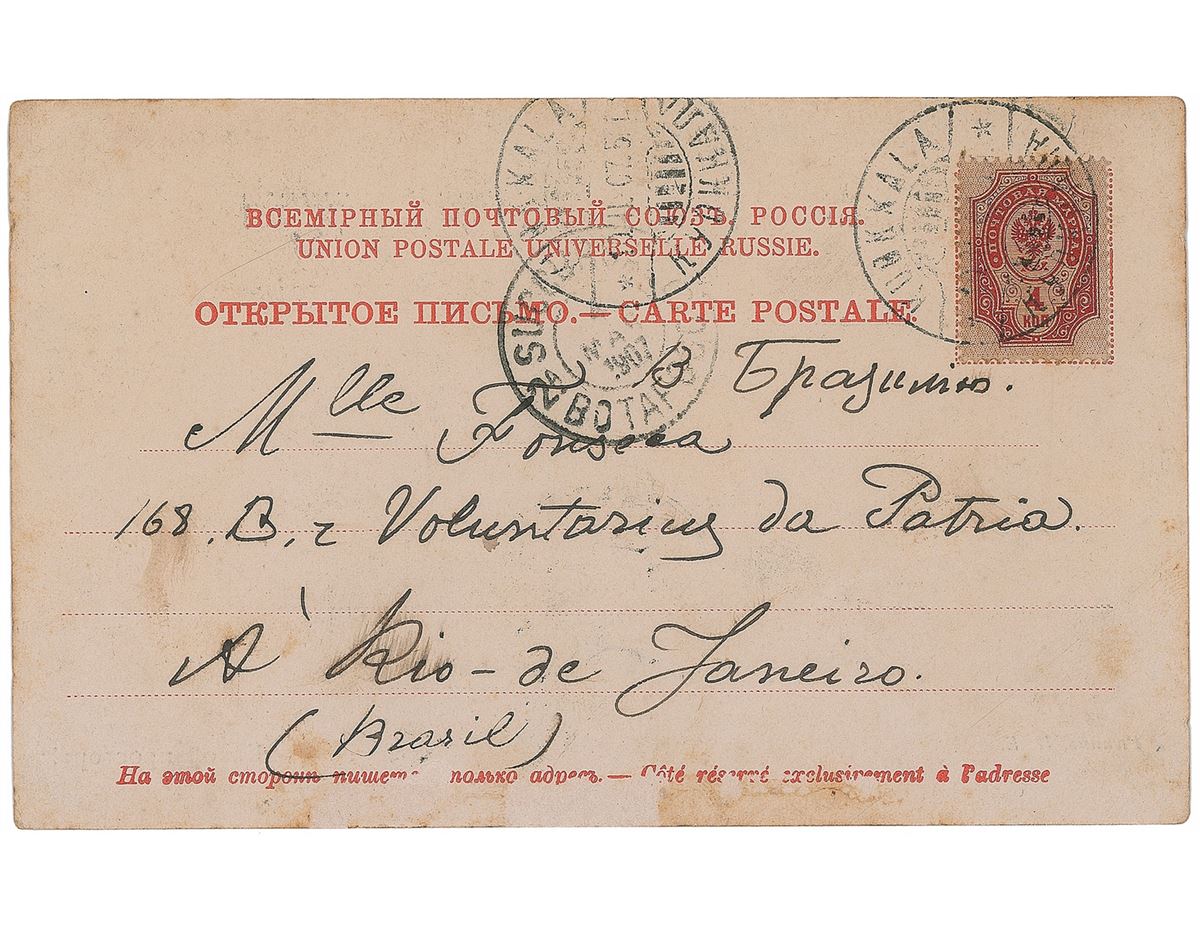 ВСЕМІРНЫЙ ПОЧТОВЫЙ СОЮЗЪ. РОССІЯ.
UNION POSTALE UNIVERSELLE RUSSIE.
ОТКРЫТОЕ ПИСЬМО.—CARTE POSTALE.
ПОЧТОВАЯ МАРКА
4
КОП.
KUOKKALA
KUOKKALA
1907
BOTAFOGO
В Бразилію.
Mlle Fonseca
168, B, r Voluntarius da Patria.
À Rio-de Janeiro.
(Brazil)
На этой сторонѣ только адресъ.— Côté réservé exclusivement à l'adresse